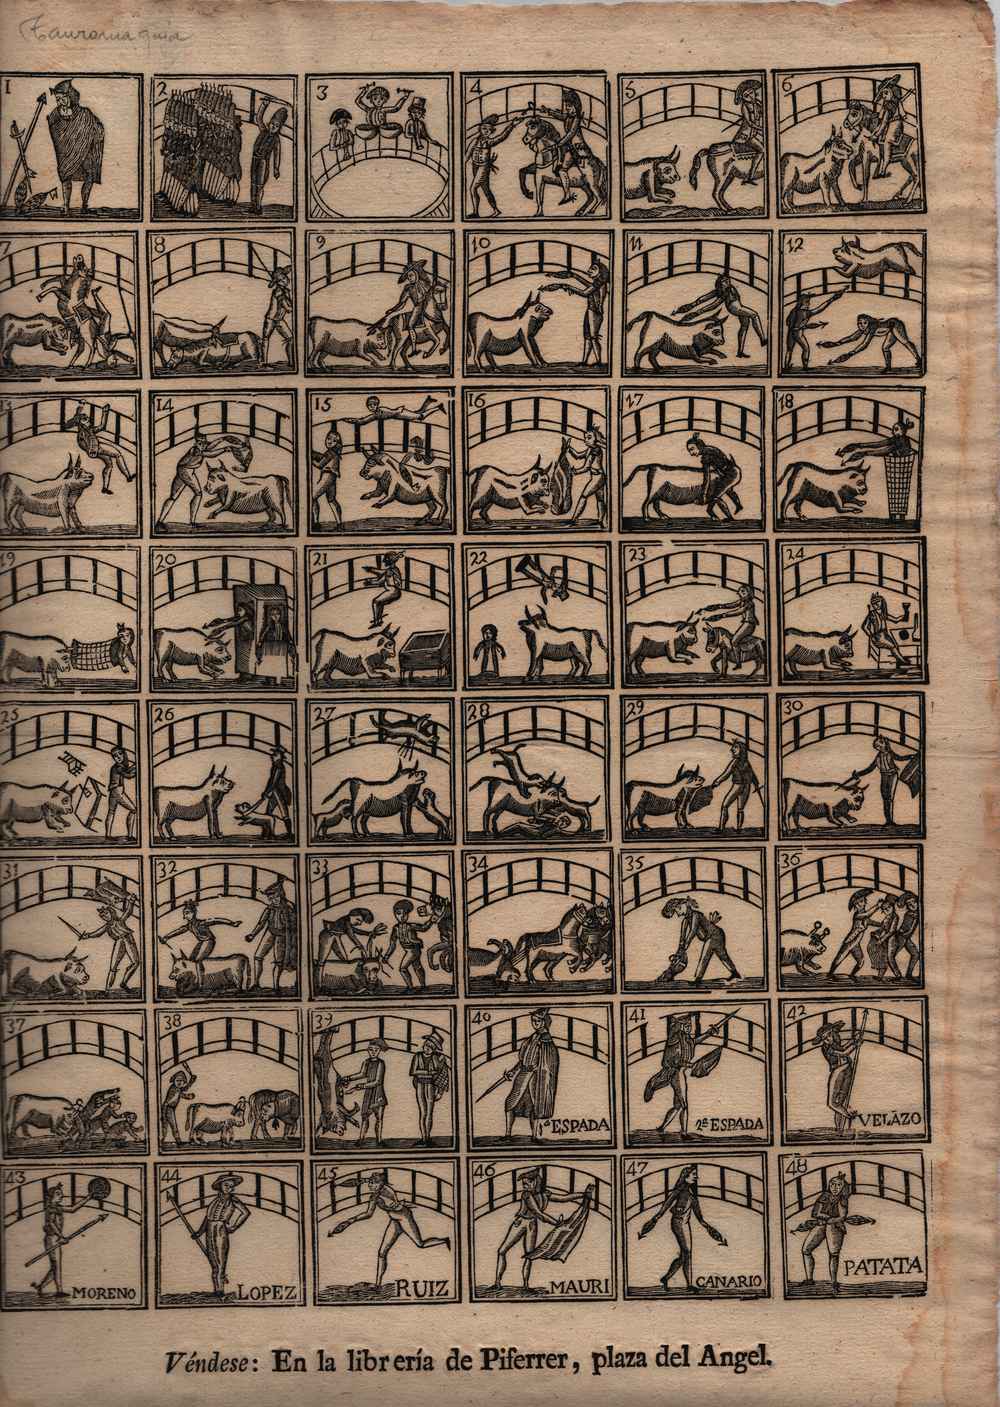 Tauromaquia
1 2 3 4 5 6
7 8 9 10 11 12
13 14 15 16 17 18
19 20 21 22 23 24
25 26 27 28 29 30
31 32 33 34 35 36
37 38 39 40 41 42
1ª ESPADA 2ª ESPADA VELAZO
43 44 45 46 47 48
MORENO LOPEZ RUIZ MAURI CANARIO PATATA
Véndese: En la librería de Piferrer, plaza del Angel.